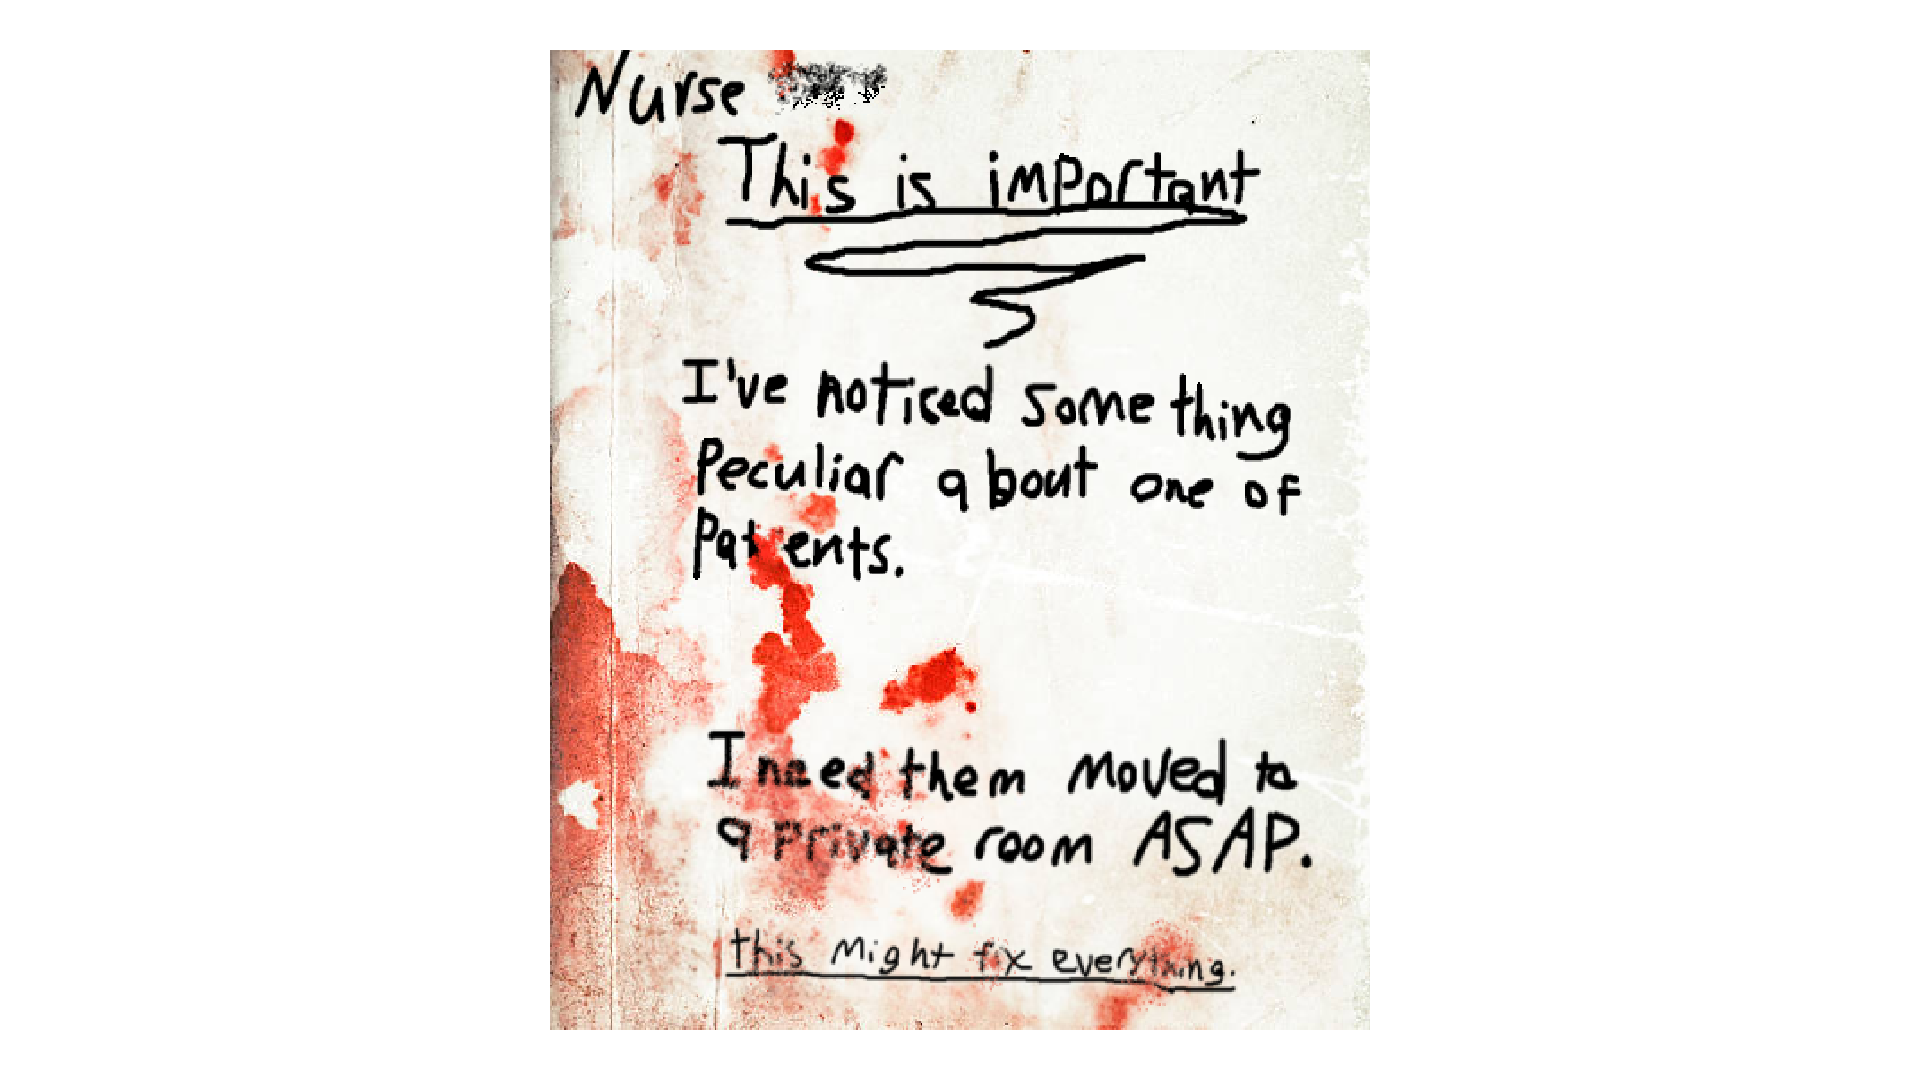 Nurse
This is important
I've noticed something
Peculiar about one of
Patients.
I need them moved to
a private room ASAP.
this might fix everything.